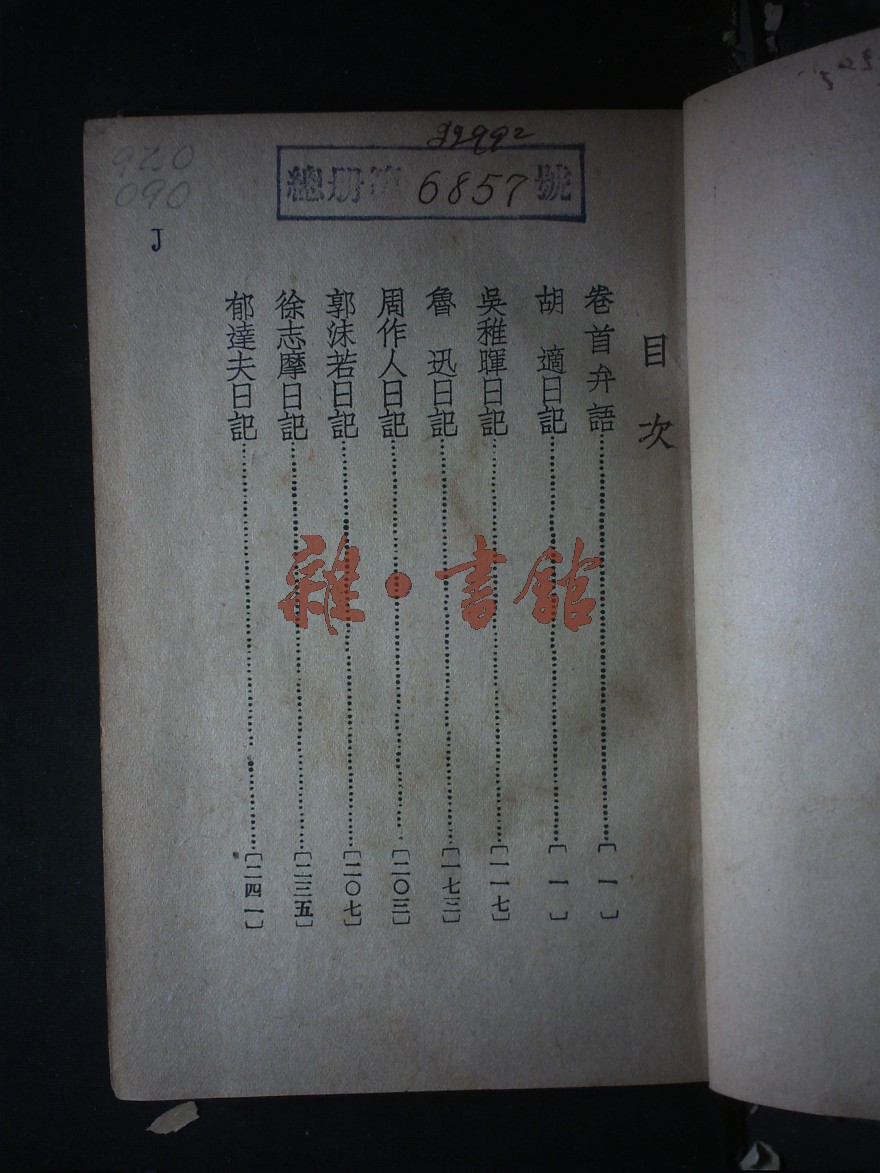 22992
920
090
總册第6857號
J
目次
卷首弁語……〔一〕
胡適日記……〔一〕
吳稚暉日記……〔一一七〕
魯迅日記……〔一七三〕
周作人日記……〔二〇三〕
郭沫若日記……〔二〇七〕
徐志摩日記……〔二三五〕
郁達夫日記……〔二四一〕
雜·書館